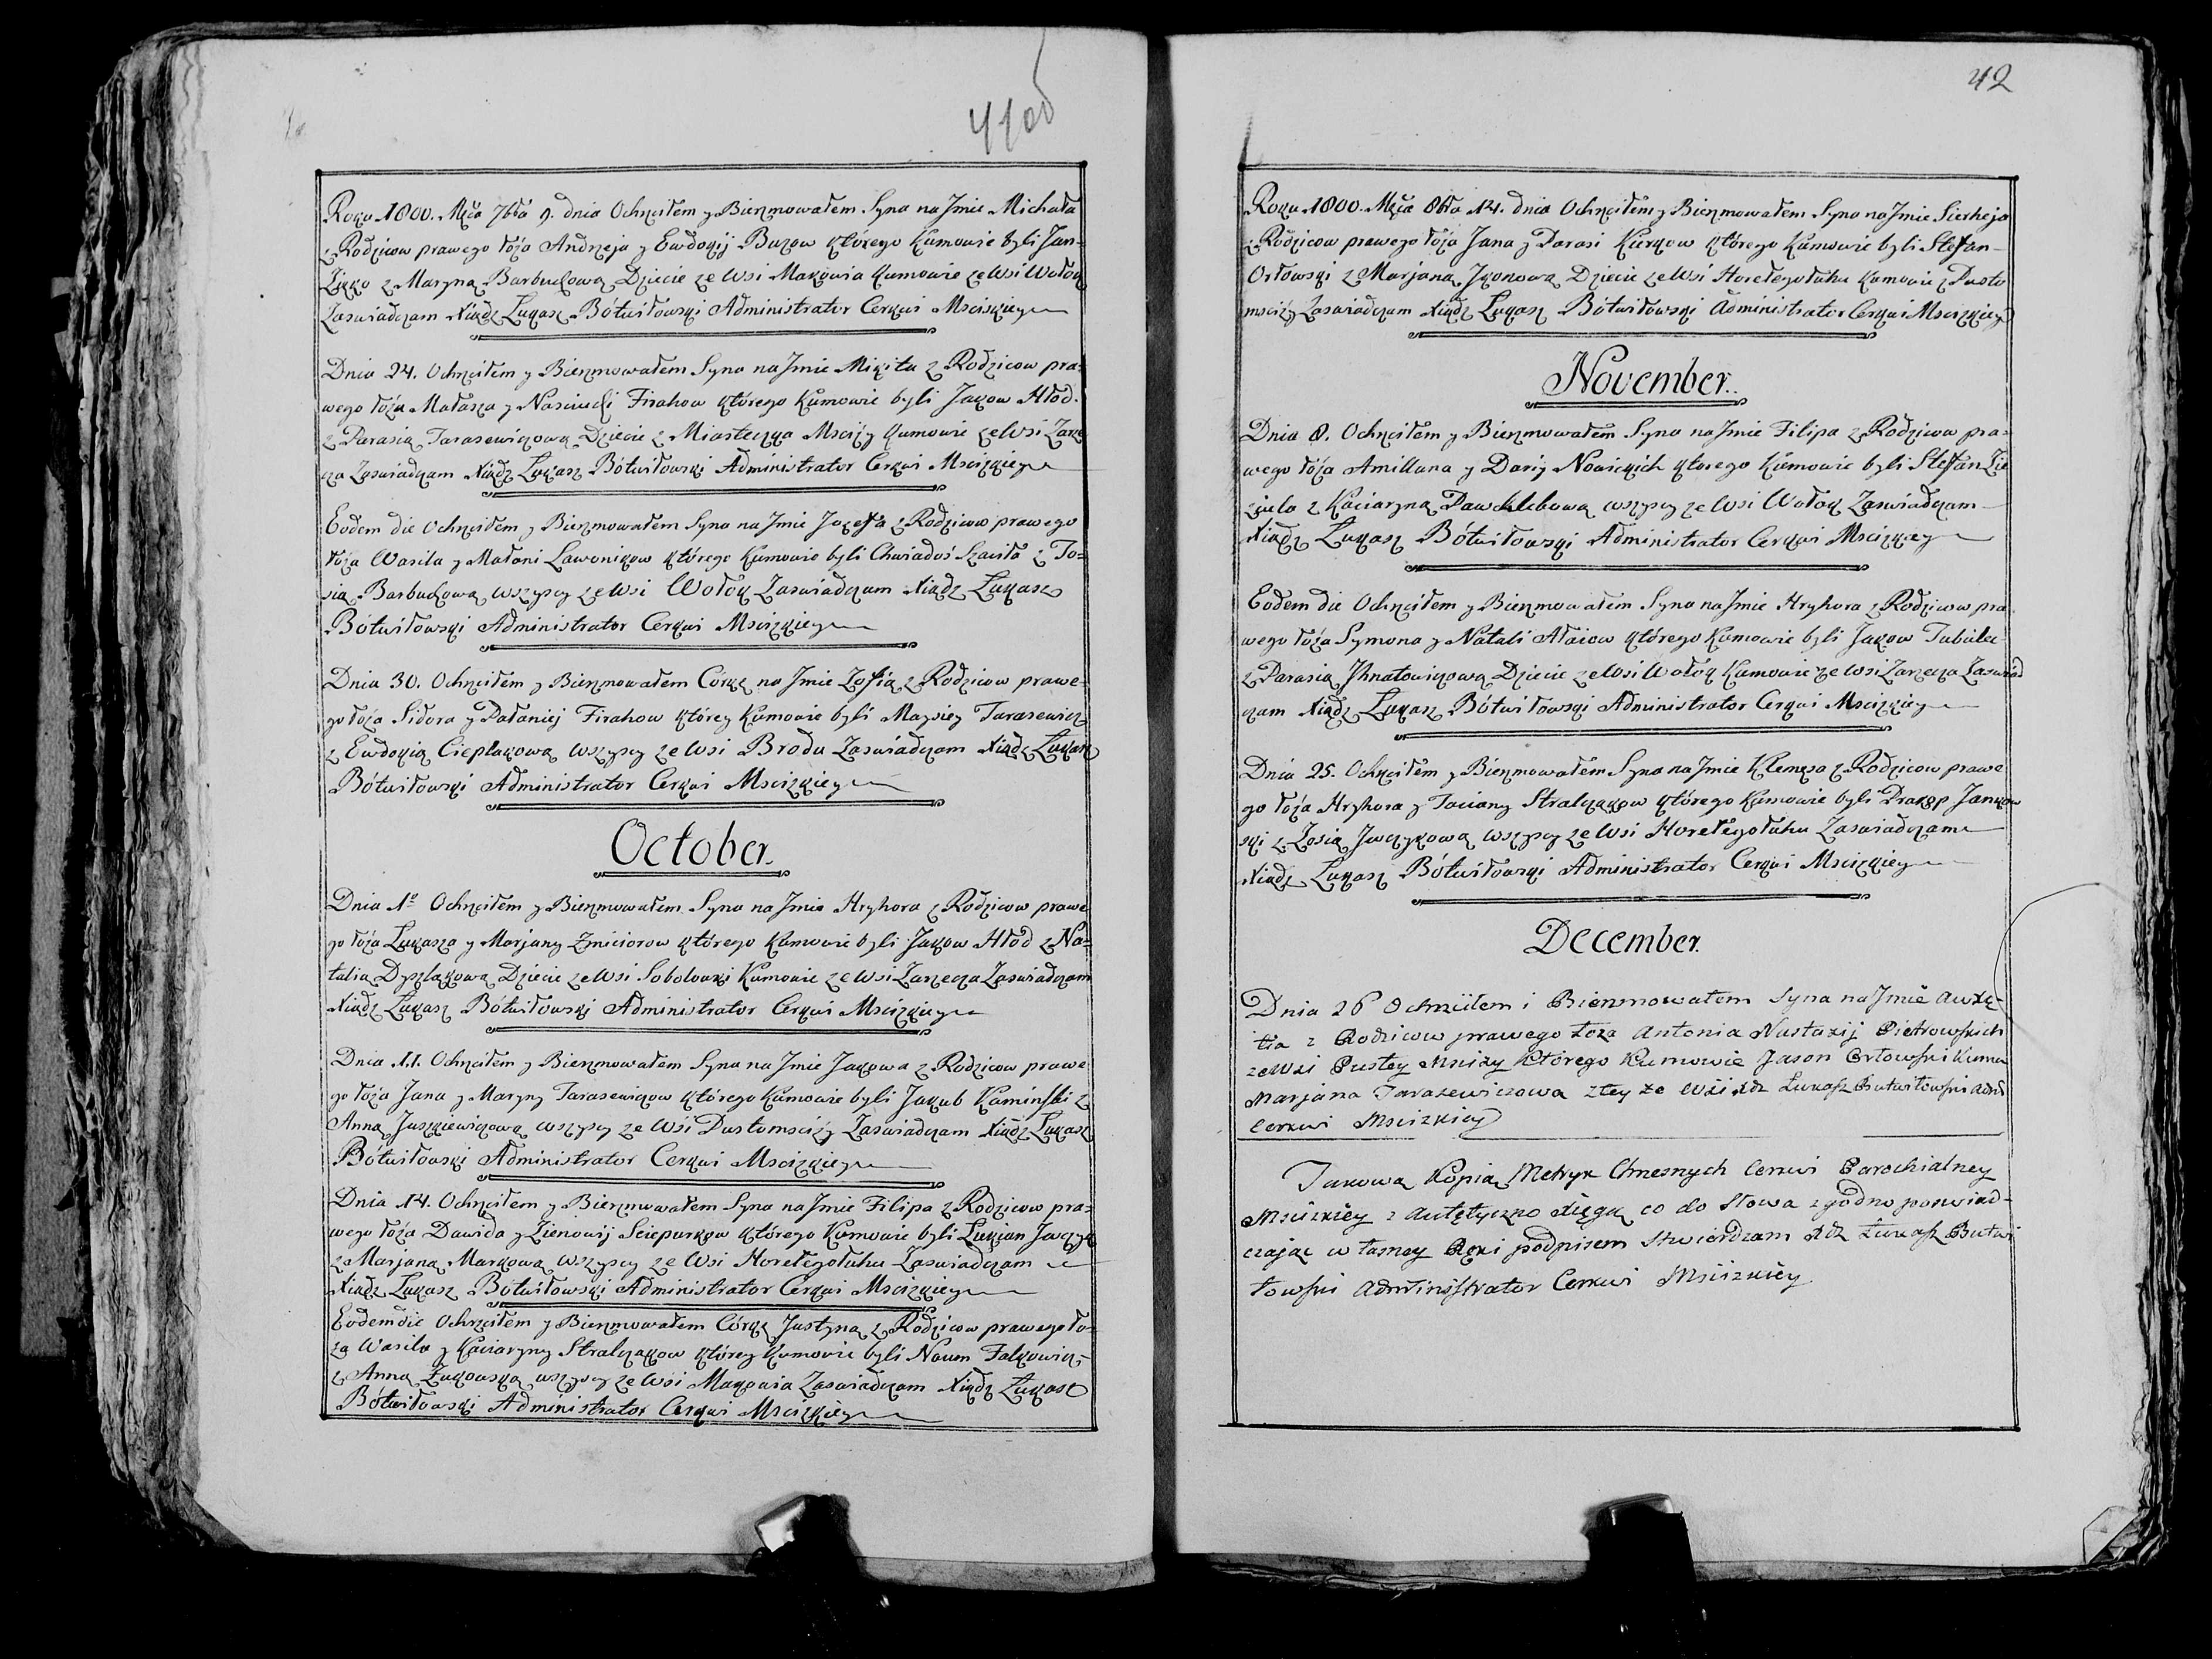 41об
Roku 1800. Mca 7bra 9. dnia Ochrzciłem y Bierzmowałem Syna na Jmie Michała
z Rodzicow prawego łoża Andrzeja y Ewdokij Buzow którego Kumowie byli Jan
Żyłko z Maryną Barbuchową Dziecie ze Wsi Makowia Kumowie ze Wsi Wołok
Zaswiadczam Xiądz Łukasz Bótwiłowski Administrator Cerkwi Mscizkiey
Dnia 24. Ochrzciłem y Bierzmowałem Syna na Jmie Mikita z Rodzicow pra=
wego łoża Matasza y Nasciuchi Firahow którego Kumowie byli Jakow Hłod.
z Parasią Tarasewiczową Dziecie z Miasteczka Msciży Kumowie ze Wsi Zarze
cza Zaswiadczam Xiądz Łukasz Bótwiłowski Administrator Cerkwi Mscizkiey
Eodem die Ochrzciłem y Bierzmowałem Syna na Jmie Jozefa z Rodzicow prawego
łoża Wasila y Matani Ławonikow którego Kumowie byli Chwiadoś Szawiła z To=
sią Barbuchową wszyscy ze Wsi Wołok Zaswiadczam Xiądz Łukasz
Bótwiłowski Administrator Cerkwi Mscizkiey
Dnia 30. Ochrzciłem y Bierzmowałem Córkę na Jmie Zofią z Rodzicow prawe=
go łoża Sidora y Pałaniej Firahow którey Kumowie byli Maysiey Tarasewicz
z Ewdokią Cieplakową wszyscy ze Wsi Brodu Zaswiadczam Xiądz Łukasz
Bótwiłowski Administrator Cerkwi Mscizkiey
October.
Dnia 1º Ochrzciłem y Bierzmowałem Syna na Jmie Hryhora z Rodzicow prawe
go łoża Łukasza y Marjany Zmiciorow którego Kumowie byli Jakow Hłod z Na=
talią Dyszlakową Dziecie ze Wsi Sobolowki Kumowie ze Wsi Zarzecza Zaswiadczam
Xiądz Łukasz Bótwiłowski Administrator Cerkwi Mscizkiey
Dnia 11. Ochrzciłem y Bierzmowałem Syna na Jmie Jakowa z Rodzicow prawe
go łoża Jana y Maryny Tarasewiczow którego Kumowie byli Jakub Kaminski z
Anną Juszkiewiczową wszyscy ze Wsi Pustomsciży Zaswiadczam Xiądz Łukasz
Bótwiłowski Administrator Cerkwi Mscizkiey
Dnia 14. Ochrzciłem y Bierzmowałem Syna na Jmie Filipa z Rodzicow pra=
wego łoża Dawida y Zienowij Sciepurkow którego Kumowie byli Łukian Jaczyk
z Marjaną Markową wszyscy ze Wsi Horełegołuhu Zaswiadczam
Xiądz Łukasz Bótwiłowski Administrator Cerkwi Mscizkiey
Eodem die Ochrzciłem y Bierzmowałem Córkę Justyna z Rodzicow prawego ło=
ża Wasila y Kaciaryny Stralczakow którey Kumowie byli Naum Falkowicz
z Anną Żukowską wszyscy ze Wsi Makowia Zaswiadczam Xiądz Łukasz
Bótwiłowski Administrator Cerkwi Mscizkiey
42
Roku 1800. Mca 8bra 14. dnia Ochrzciłem y Bierzmowałem Syna na Jmie Sierheja
z Rodzicow prawego łoża Jana y Parasi Kierkow którego Kumowie byli Stefan
Orłowski z Marjaną Jkonową Dziecie ze Wsi Horełegołuhu Kumowie z Pusto
msciży Zaswiadczam Xiądz Łukasz Bótwiłowski Administrator Cerkwi Mscizkiey
November.
Dnia 8. Ochrzciłem y Bierzmowałem Syna na Jmie Filipa z Rodzicow pra=
wego łoża Amillana y Darij Nowickich którego Kumowie byli Stefan Zie
ziula z Kaciaryną Pawchlebową wszyscy ze Wsi Wołok Zaswiadczam
Xiądz Łukasz Bótwiłowski Administrator Cerkwi Mscizkiey
Eodem die Ochrzciłem y Bierzmowałem Syna na Jmie Hryhora z Rodzicow pra
wego łoża Symona y Natali Ataiow którego Kumowie byli Jakow Tabulec
z Parasią Jhnatowiczową Dziecie ze Wsi Wołok Kumowie ze Wsi Zarzecza Zaswiad
czam Xiądz Łukasz Bótwiłowski Administrator Cerkwi Mscizkiey
Dnia 25. Ochrzciłem y Bierzmowałem Syna na Jmie Klemęsa z Rodzicow prawe
go łoża Hryhora y Taciany Stralczakow którego Kumowie byli Prakop Jankow
ski z Zosią Jaczykową wszyscy ze Wsi Horełegołuhu Zaswiadczam
Xiądz Łukasz Bótwiłowski Administrator Cerkwi Mscizkiey
December.
Dnia 26 Ochrzciłem i Bierzmowałem Syna na Jmie
z Rodzicow prawego łoza Antonia Nastazij Pietrowskich
ze Wsi Pustey Mscizy którego Kumowie Jason Orłowski Kuma
Marjana Tarasewiczowa z tey ze Wsi Xdz Łukasz Butwiłowski Adm
Cerkwi Mscizkiey
Takową Kopią Metryk Chrzesnych Cerkwi Parochialney
Mscizkiey z Autętyczno Xięgą co do Słowa zgodno poswiad-
czając własney Ręki podpisem stwierdzam Xdz Łukasz Butwi
łowski Administrator Cerkwi Mscizkiey